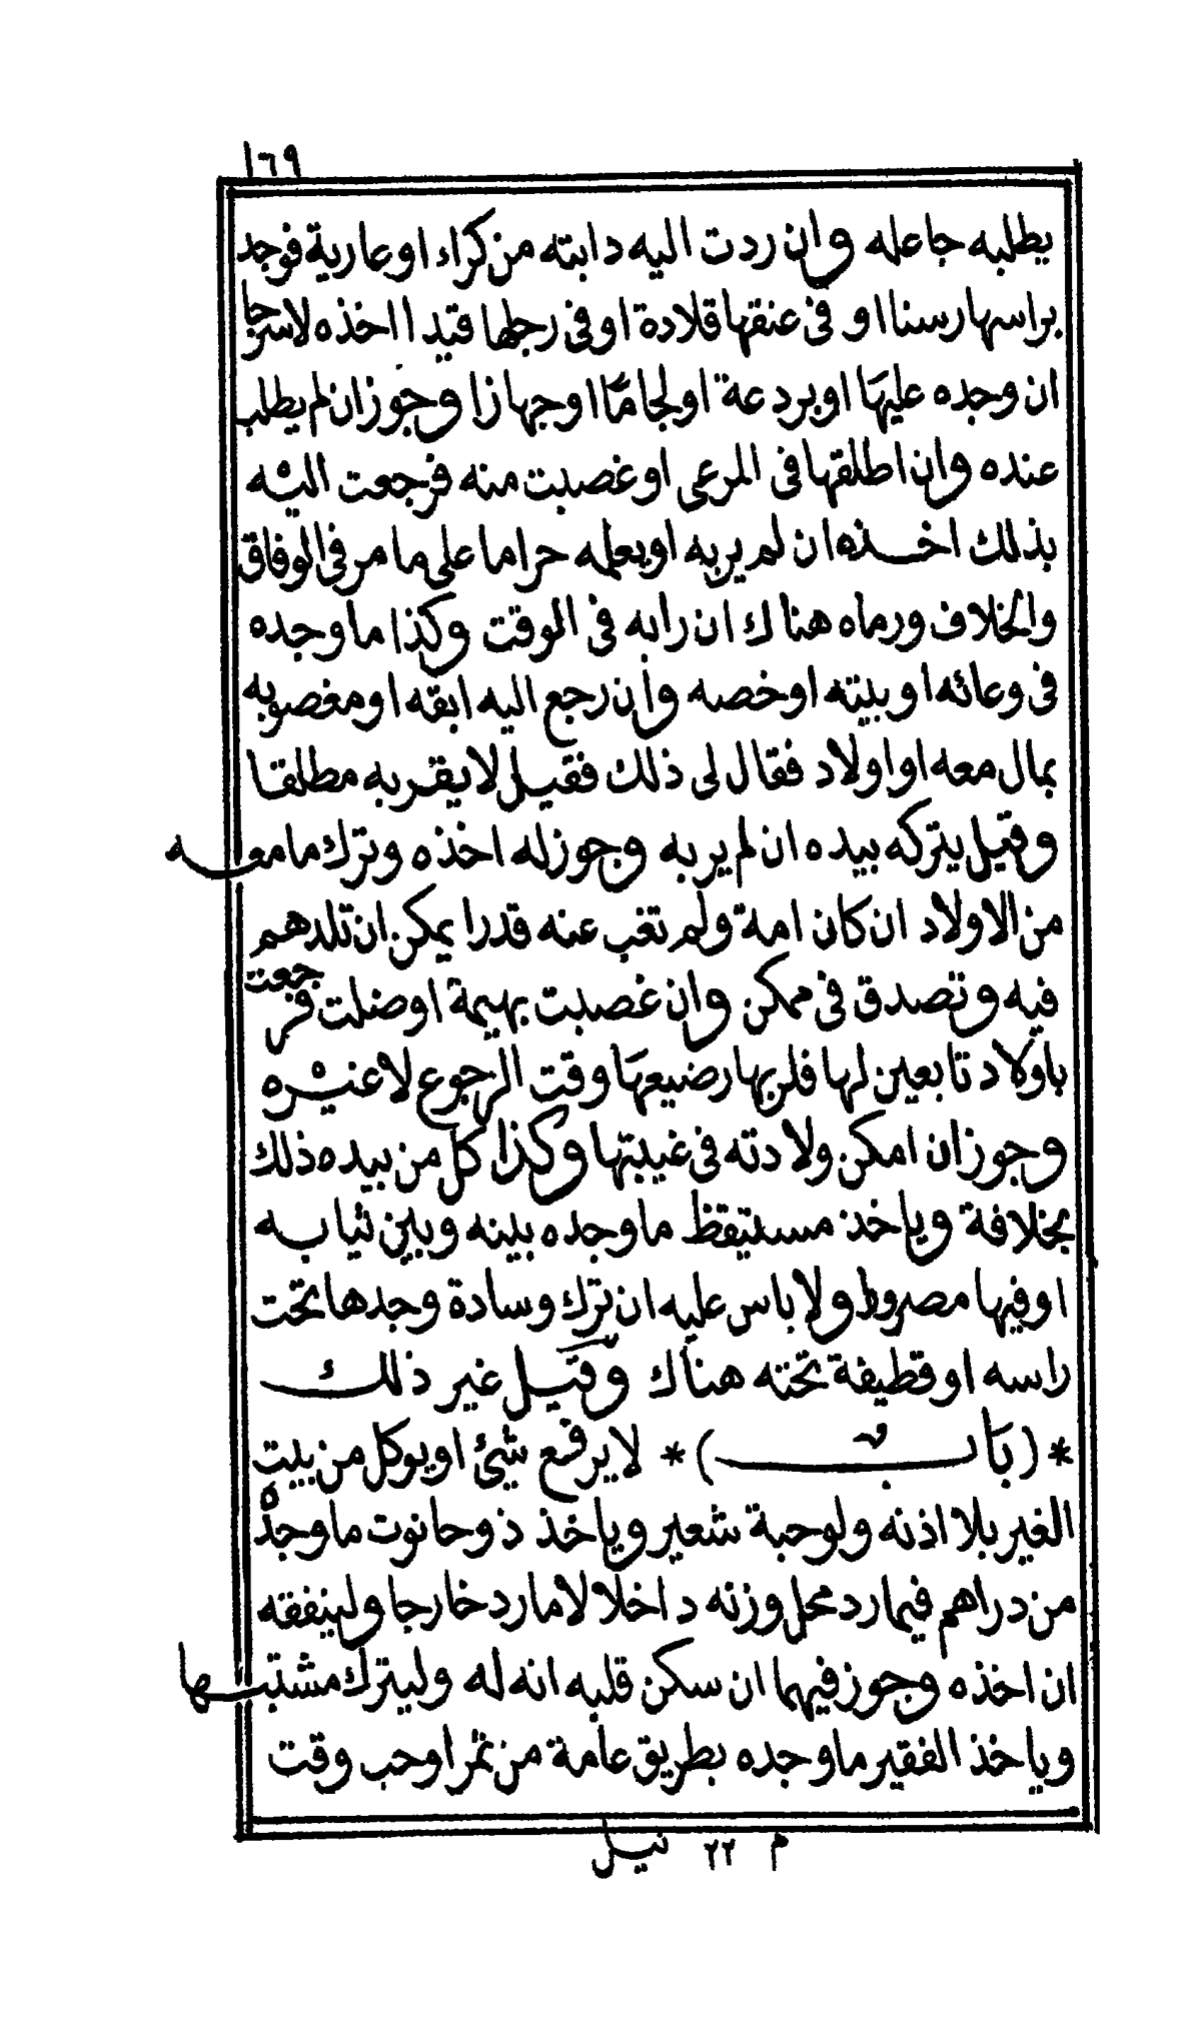 ١٦٩
يطلبه جاعله وان ردت اليه دابته من كراء او عارية فوجد
براسها رسنا او فى عنقها قلادة او فى رجلها قيدا اخذه لاسرجا
ان وجده عليها او بردعة او لجاما او جهازا وجوز ان لم يطلب
عنده وان اطلقها فى المرعى او غصبت منه فرجعت اليه
بذلك اخذه ان لم يربه او يعلمه حراما على ما مر فى الوفاق
والخلاف ورماه هناك ان رابه فى الوقت وكذا ما وجده
فى وعائه او بيته او خصه وان رجع اليه ابقه او مغصوبه
بمال معه او اولاد فقال لى ذلك فقيل لا يقربه مطلقا
وقيل يتركه بيده ان لم يربه وجوز له اخذه وترك ما معه
من الاولاد ان كان امة ولم تغب عنه قدرا يمكن ان تلدهم
فيه وتصدق فى ممكن وان غصبت بهيمة او ضلت فرجعت
باولاد تابعين لها فلربها رضيعها وقت الرجوع لا غيره
وجوز ان امكن ولادته فى غيبتها وكذا كل من بيده ذلك
بخلافة وياخذ مستيقظ ما وجده بينه وبين ثيابه
او فيها مصروط ولا باس عليه ان ترك وسادة وجدها تحت
راسه او قطيفة تحته هناك وقيل غير ذلك
* (باب) * لا يرفع شئ او يوكل من بيت
الغير بلا اذنه ولو حبة شعير وياخذ ذو حانوت ما وجده
من دراهم فيما رد محل وزنه داخلا لا ما رد خارجا ولينفقه
ان اخذه وجوز فيهما ان سكن قلبه انه له وليترك مشتبها
وياخذ الفقير ما وجده بطريق عامة من ثمر او حب وقت
م ٢٢ نيل